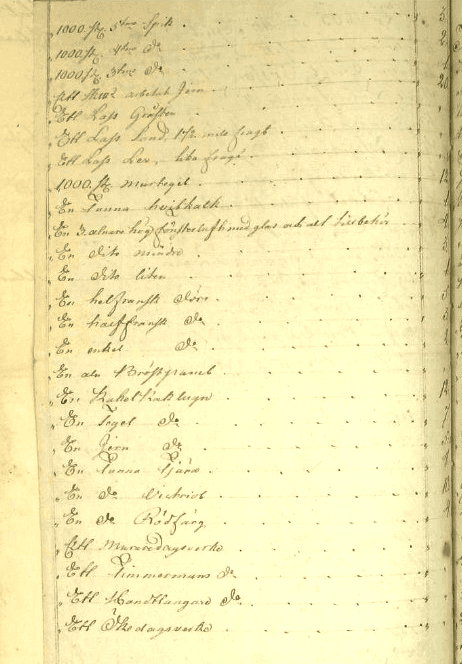 1000 st. 5 tms Spik
1000 st. 4 tms do
1000 st. 3 tms do
Ett arbetat Jern
Ett Lass Gråsten
Ett Lass Sand
Ett Lass Ler, lika
1000 st. Murtegel
En Tunna hvitkalk
En alnars hög fönsterluft med glas och all tillbehör
En dito mindre
En dito liten
En helfransk dörr
En halffransk do
En enkel do
En aln Bröstpanel
En Kakel Kakelugn
En Tegel do
En Jern do
En Tunna Tjära
En do Victriol
En do Rödfärg
Ett Muraredagsverke
Ett Timmermans do
Ett Handtlangare do
Ett Ökedagsverke